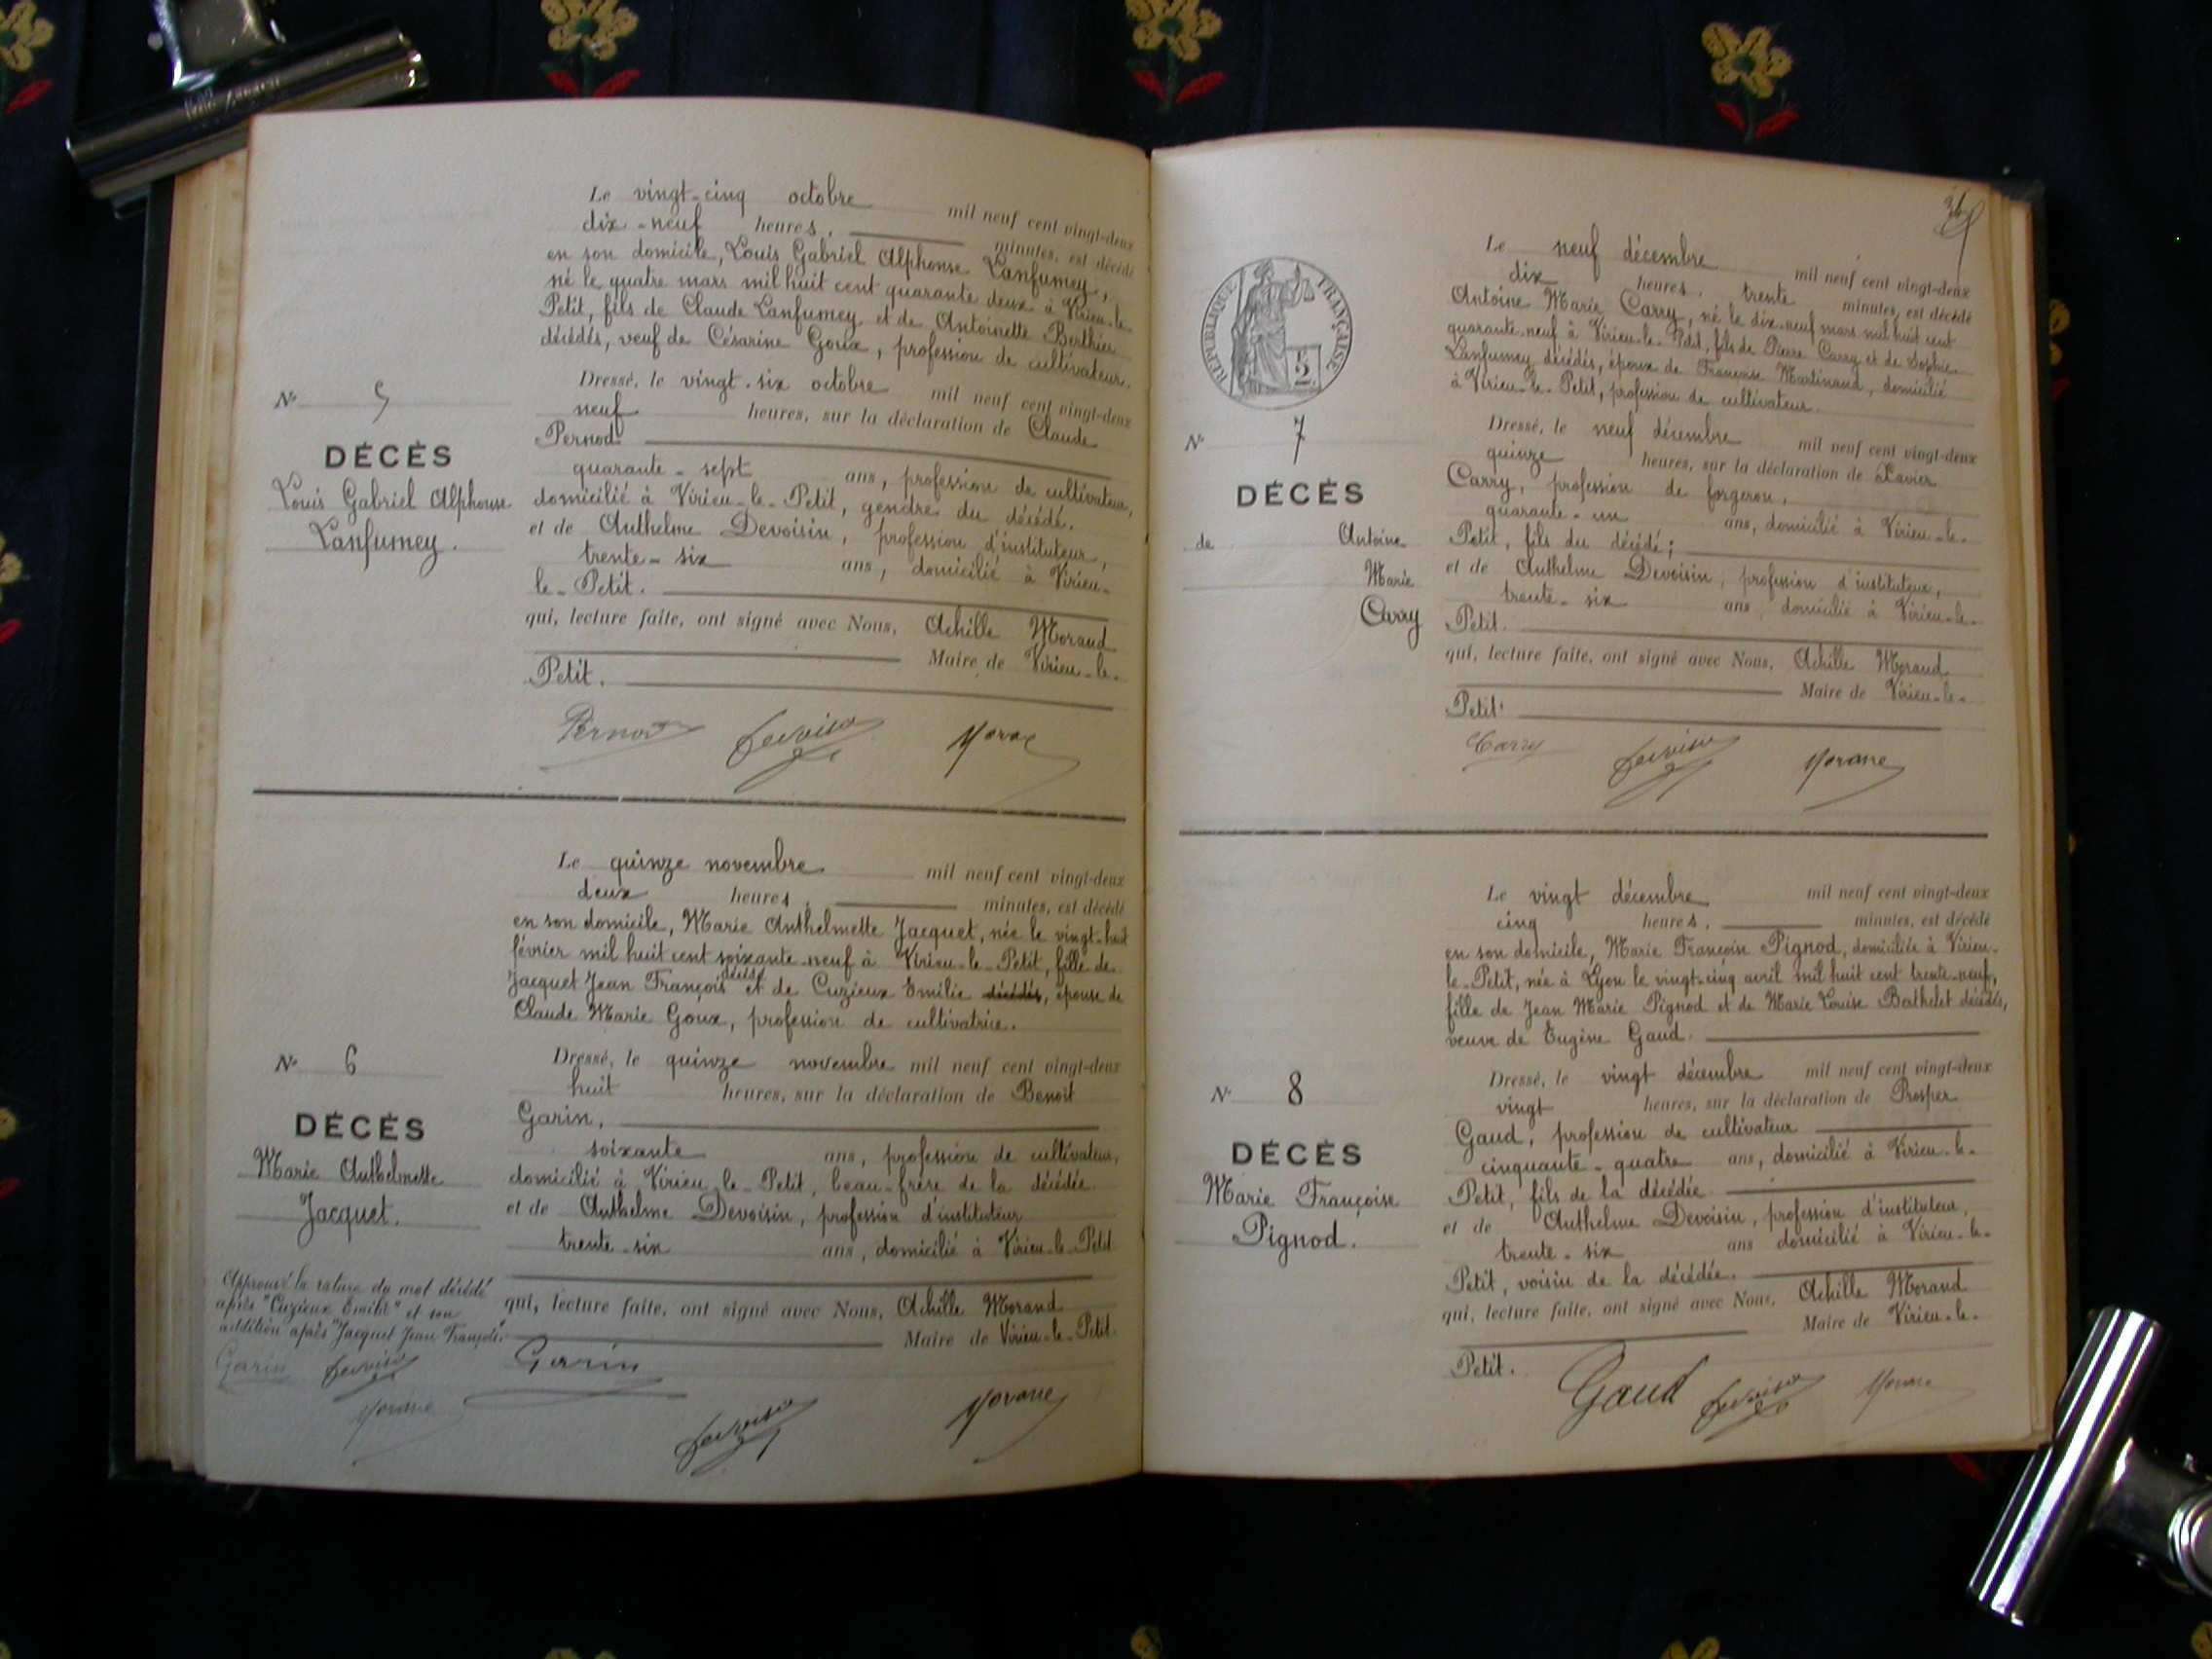 Le vingt-cinq octobre mil neuf cent vingt-deux
dix-neuf heures, minutes, est décédé
en son domicile, Louis Gabriel Alphonse Lanfumey,
né le quatre mars mil huit cent quarante deux à Virieu-le-
Petit, fils de Claude Lanfumey et de Antoinette Berthier
décédés, veuf de Césarine Goux, profession de cultivateur.
N° 5
DÉCÈS
Louis Gabriel Alphonse
Lanfumey.
Dressé, le vingt-six octobre mil neuf cent vingt-deux
neuf heures, sur la déclaration de Claude
Pernod
quarante-sept ans, profession de cultivateur,
domicilié à Virieu-le-Petit, gendre du décédé.
et de Anthelme Devoisin, profession d'instituteur,
trente-six ans, domicilié à Virieu-
le-Petit.
qui, lecture faite, ont signé avec Nous, Achille Morand
Maire de Virieu-le-
Petit.
Pernod Devoisin Morand
Le quinze novembre mil neuf cent vingt-deux
deux heures, minutes, est décédé
en son domicile, Marie Anthelmette Jacquet, née le vingt-huit
février mil huit cent soixante-neuf à Virieu-le-Petit, fille de
Jacquet Jean François décédé et de Cuzieux Emilie décédés, épouse de
Claude Marie Goux, profession de cultivatrice.
N° 6
DÉCÈS
Marie Anthelmette
Jacquet.
Dressé, le quinze novembre mil neuf cent vingt-deux
huit heures, sur la déclaration de Benoit
Garin,
soixante ans, profession de cultivateur,
domicilié à Virieu-le-Petit, beau-frère de la décédée
et de Anthelme Devoisin, profession d'instituteur
trente-six ans, domicilié à Virieu-le-Petit
qui, lecture faite, ont signé avec Nous, Achille Morand
Maire de Virieu-le-Petit.
Approuvé la rature du mot décédé
après "Cuzieux Emilie" et son
addition après "Jacquet Jean François".
Garin Devoisin
Morand
Garin
Devoisin Morand
36
RÉPUBLIQUE FRANÇAISE
5
Le neuf décembre mil neuf cent vingt-deux
dix heures, trente minutes, est décédé
Antoine Marie Carry, né le dix-neuf mars mil huit cent
quarante-neuf à Virieu-le-Petit, fils de Pierre Carry et de Sophie
Lanfumey décédés, époux de Françoise Martinand, domicilié
à Virieu-le-Petit, profession de cultivateur.
N° 7
DÉCÈS
de Antoine
Marie
Carry
Dressé, le neuf décembre mil neuf cent vingt-deux
quinze heures, sur la déclaration de Xavier
Carry, profession de forgeron,
quarante-un ans, domicilié à Virieu-le-
Petit, fils du décédé;
et de Anthelme Devoisin, profession d'instituteur,
trente-six ans, domicilié à Virieu-le-
Petit.
qui, lecture faite, ont signé avec Nous, Achille Morand
Maire de Virieu-le-
Petit.
Carry Devoisin Morand
Le vingt décembre mil neuf cent vingt-deux
cinq heures, minutes, est décédé
en son domicile, Marie Françoise Pignod, domiciliée à Virieu-
le-Petit, née à Lyon le vingt-cinq avril mil huit cent trente-neuf,
fille de Jean Marie Pignod et de Marie Louise Barthelet décédés,
veuve de Eugène Gaud.
N° 8
DÉCÈS
Marie Françoise
Pignod.
Dressé, le vingt décembre mil neuf cent vingt-deux
vingt heures, sur la déclaration de Prosper
Gaud, profession de cultivateur
cinquante-quatre ans, domicilié à Virieu-le-
Petit, fils de la décédée
et de Anthelme Devoisin, profession d'instituteur,
trente-six ans domicilié à Virieu-le-
Petit, voisin de la décédée.
qui, lecture faite, ont signé avec Nous, Achille Morand
Maire de Virieu-le-
Petit.
Gaud Devoisin Morand